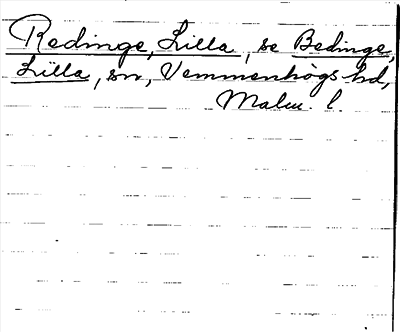 Redinge, Lilla, se Bedinge,
Lilla, sn, Vemmenhögs hd,
Malm. l.